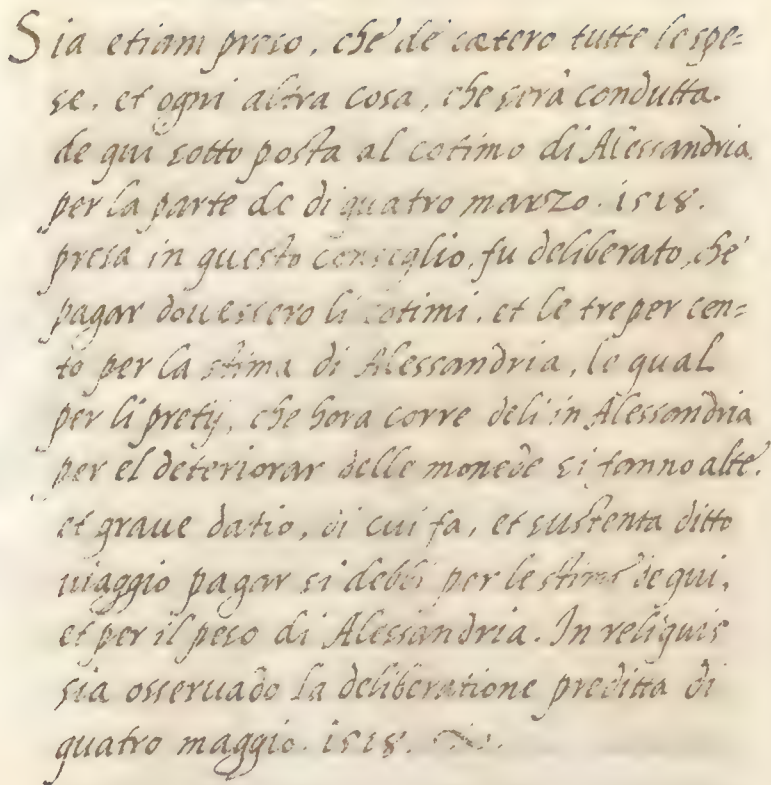 Sia etiam preso, che de cætero tutte le spe=
se, et ogni altra cosa, che serà condutta
de qui sotto posta al cotimo di Alessandria.
per la parte de di quatro marzo. 1518.
presa in questo Conseglio, fu deliberato, che
pagar douessero li cotimi, et le tre per cen=
to per la stima di Alessandria, le qual
per li pretij, che hora corre de li in Alessandria
per el deteriorar delle monede si fanno alte,
et graue datio, di cui fa, et sustenta ditto
uiaggio pagar si debbi per le stime de qui,
et per il peso di Alessandria. In reliquis
sia osseruado la deliberatione preditta di
quatro maggio. 1518.